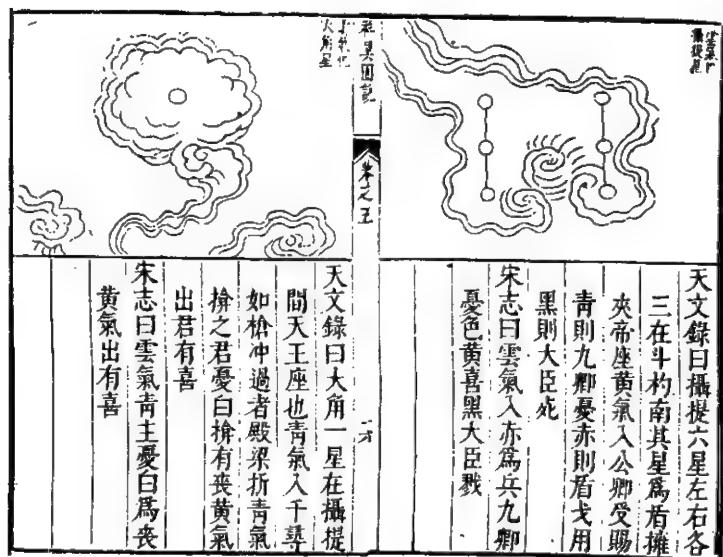 攝提星
天文錄曰攝提六星左右各
三在斗杓南其星為盾擁
夾帝座黃氣入公卿受賜
青則九卿憂赤則盾戈用
黑則大臣死
宋志曰雲氣入赤為兵九卿
憂色黃喜黑大臣戮
卷之五
大角星
天文錄曰大角一星在攝提
間天王座也青氣入千尋
如槍冲過者殿梁折青氣
搶之君憂白搶有喪黃氣
出君有喜
宋志曰雲氣青主憂白為喪
黃氣出有喜